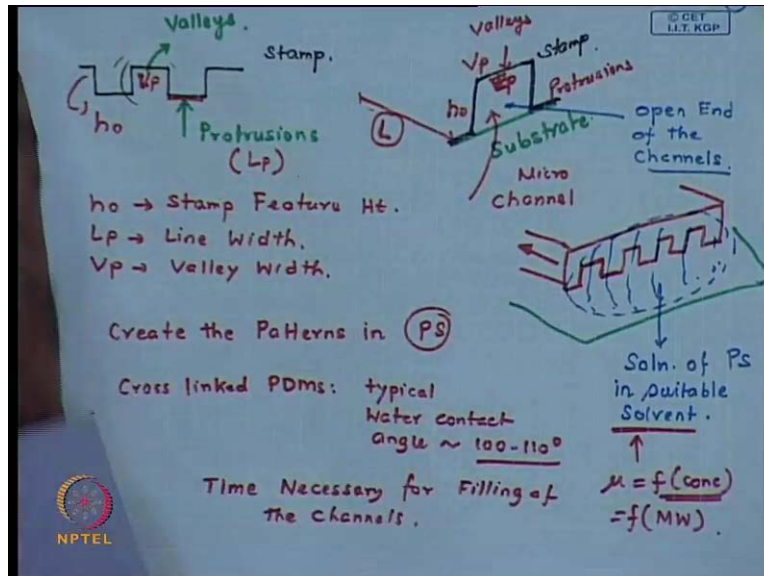 © CET
I.I.T. KGP
Valleys.
Stamp.
Vp
ho
Protrusions
(Lp)
Valleys
Vp
Stamp
Lp
Protrusions
ho
L
Substrate
open End
of the
Channels.
Micro
Channel
ho → Stamp Feature Ht.
Lp → Line Width.
Vp → Valley Width.
Create the Patterns in PS
Soln. of PS
in suitable
Solvent.
Cross linked PDMS: typical
Water contact
angle ~ 100-110°
Time Necessary for Filling of
the Channels.
μ = f(conc)
= f(MW).
NPTEL